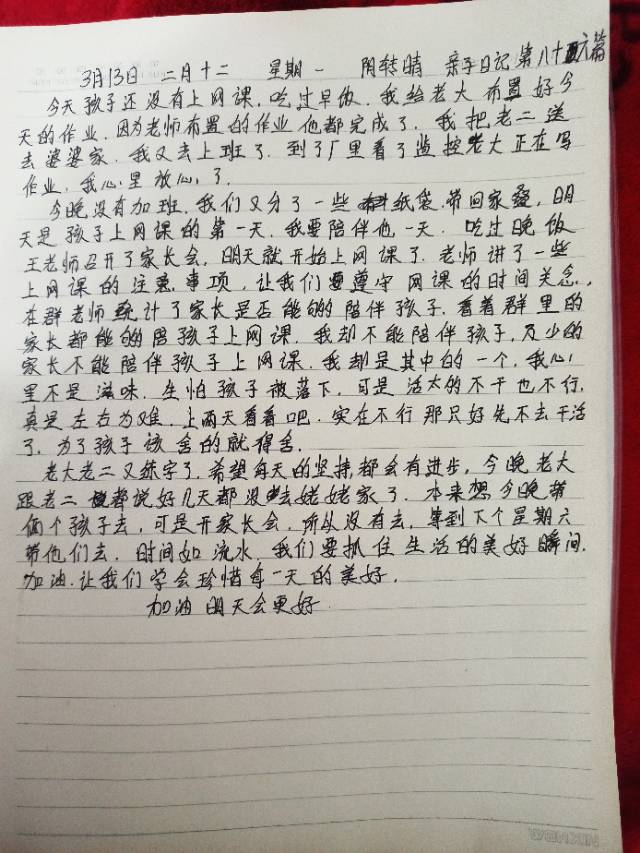 3月13日 二月十二 星期一 阴转晴 亲子日记第八十六篇
今天孩子还没有上网课.吃过早饭.我给老大布置好今
天的作业.因为老师布置的作业他都完成了.我把老二送
去婆婆家.我又去上班了.到了厂里看了监控老大正在写
作业,我心里放心了.
今晚没有加班.我们又分了一些纸袋.带回家叠,明
天是孩子上网课的第一天.我要陪伴他一天.吃过晚饭
王老师召开了家长会,明天就开始上网课了.老师讲了一些
上网课的注意事项,让我们要遵守网课的时间关念.
在群老师统计了家长是否能够的陪伴孩子.看着群里的
家长都能够的陪孩子上网课.我却不能陪伴孩子,及少的
家长不能陪伴孩子上网课.我却是其中的一个,我心
里不是滋味.生怕孩子被落下,可是活太的不干也不行.
真是左右为难.上两天看看吧.实在不行那只好先不去干活
了.为了孩子该舍的就得舍.
老大老二又练字了.希望每天的坚持都会有进步,今晚老大
跟老二都说好几天都没去姥姥家了.本来想今晚带
俩个孩子去,可是开家长会,所以没有去.等到下个星期六
带他们去.时间如流水,我们要抓住生活的美好瞬间.
加油.让我们学会珍惜每一天的美好.
加油明天会更好.